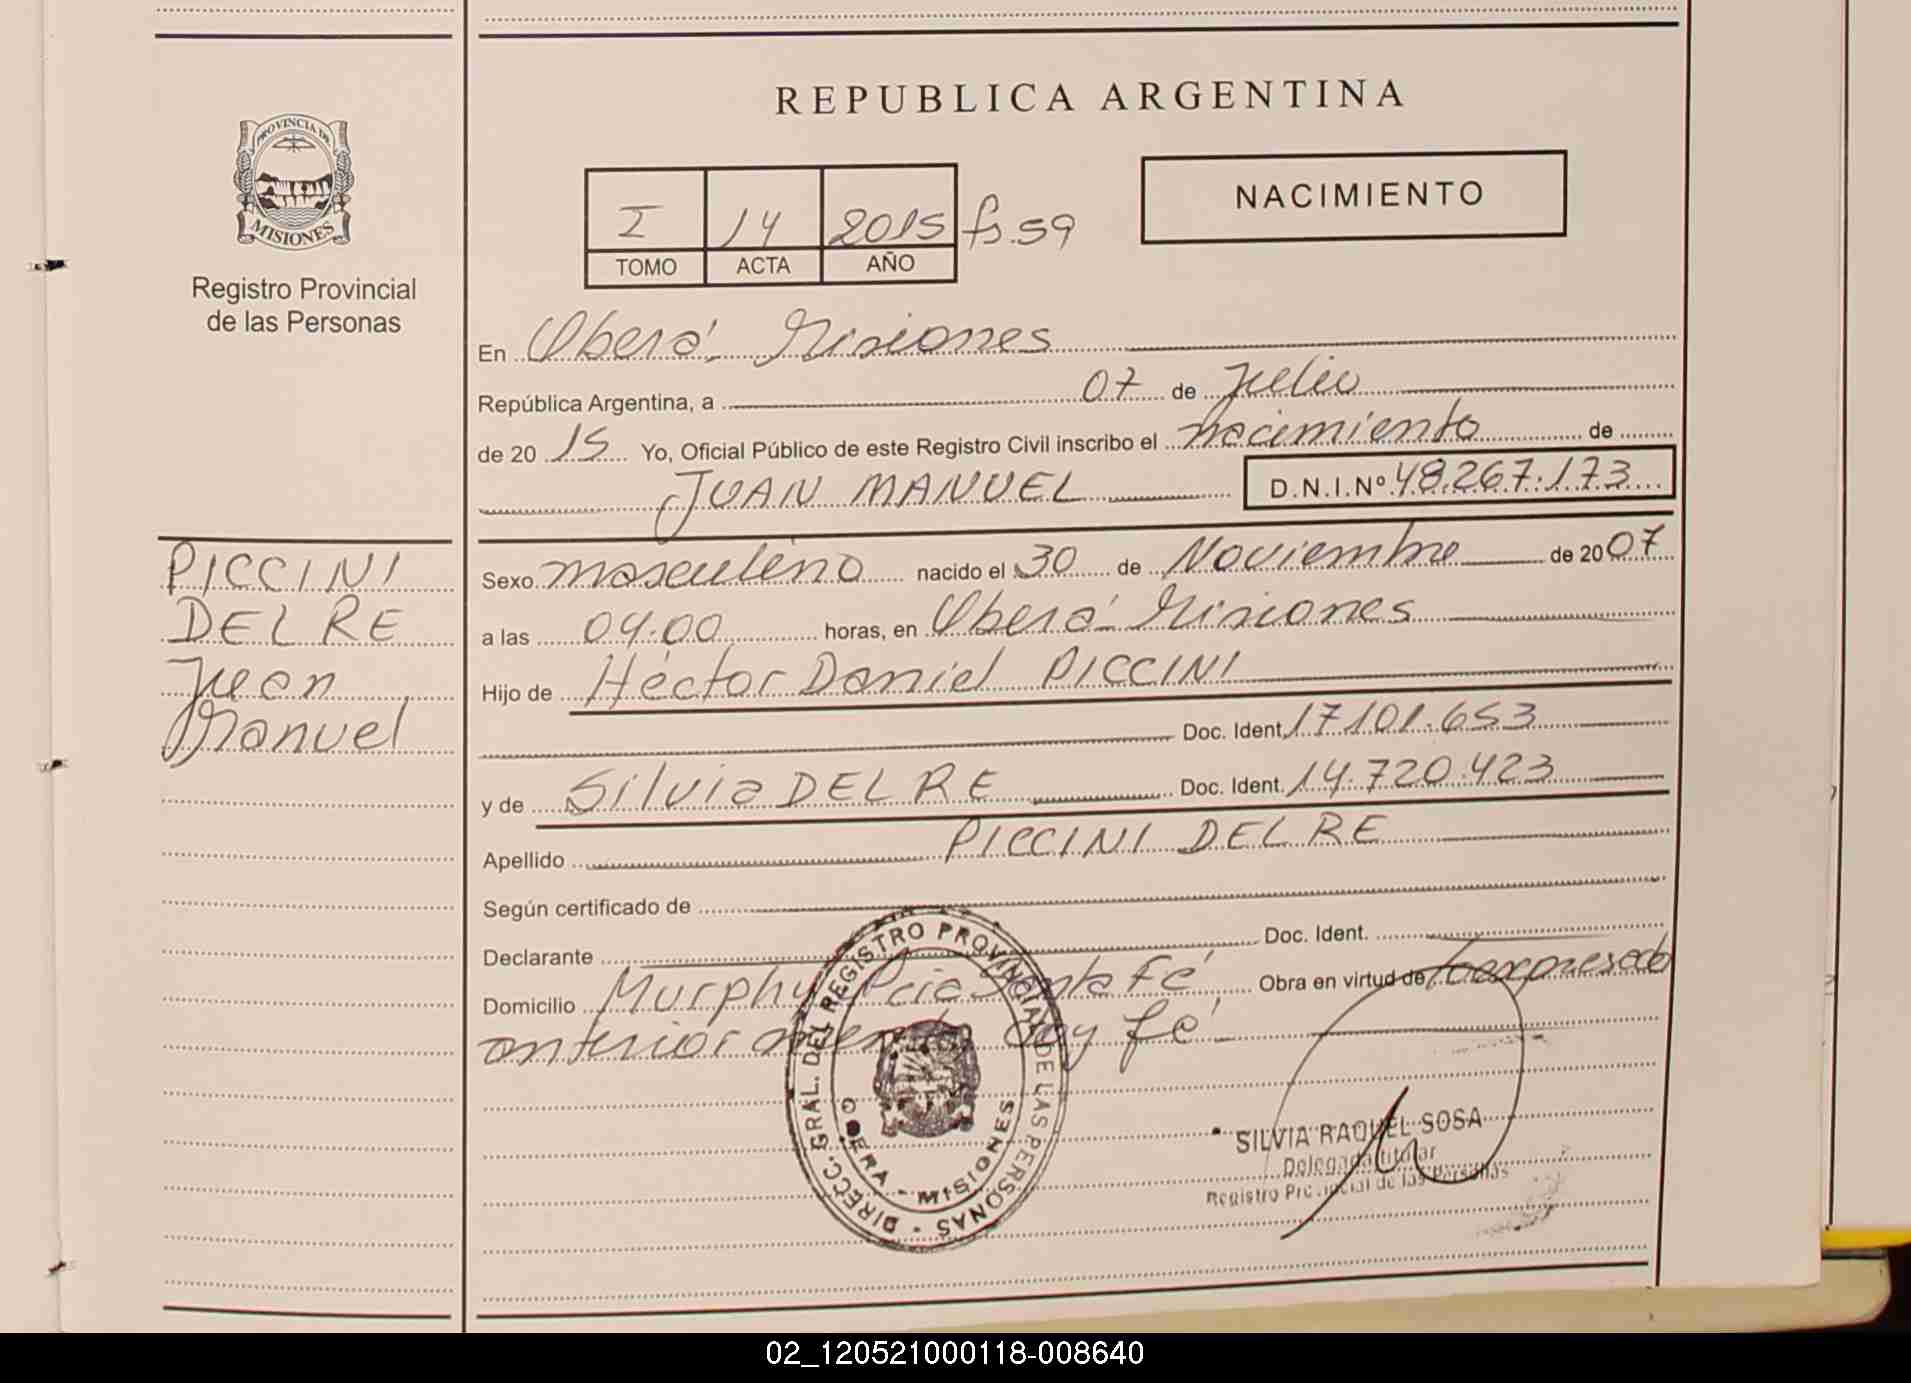 PROVINCIA DE
MISIONES
Registro Provincial
de las Personas
REPUBLICA ARGENTINA
I 14 2015 fs.59
TOMO ACTA AÑO
NACIMIENTO
En Oberá Misiones
República Argentina, a 07 de Julio
de 2015 Yo, Oficial Público de este Registro Civil inscribo el nacimiento de
JUAN MANUEL D.N.I.Nº 48.267.173
PICCINI
DEL RE
Juan
Manuel
Sexo masculino nacido el 30 de Noviembre de 2007
a las 04.00 horas, en Oberá Misiones
Hijo de Héctor Daniel PICCINI
Doc. Ident. 17101.653
y de Silvia DEL RE Doc. Ident. 14.720.423
Apellido PICCINI DEL RE
Según certificado de
Declarante Doc. Ident.
Domicilio Murphy Pcia Santa Fé Obra en virtud de lo expresado
anteriormente doy fé
DIRECC. GRAL. DEL REGISTRO PROVINCIAL DE LAS PERSONAS
OBERA - MISIONES
SILVIA RAQUEL SOSA
Delegada titular
Registro Provincial de las Personas
02_120521000118-008640